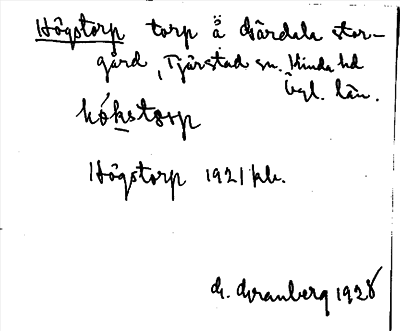 Högstorp torp å Gärdala stor-
gård, Tjärstad sn. Kinda hd
Ögl. län.
hö́kstɔrp
Högstorp 1921 jb.
G. Granberg 1928